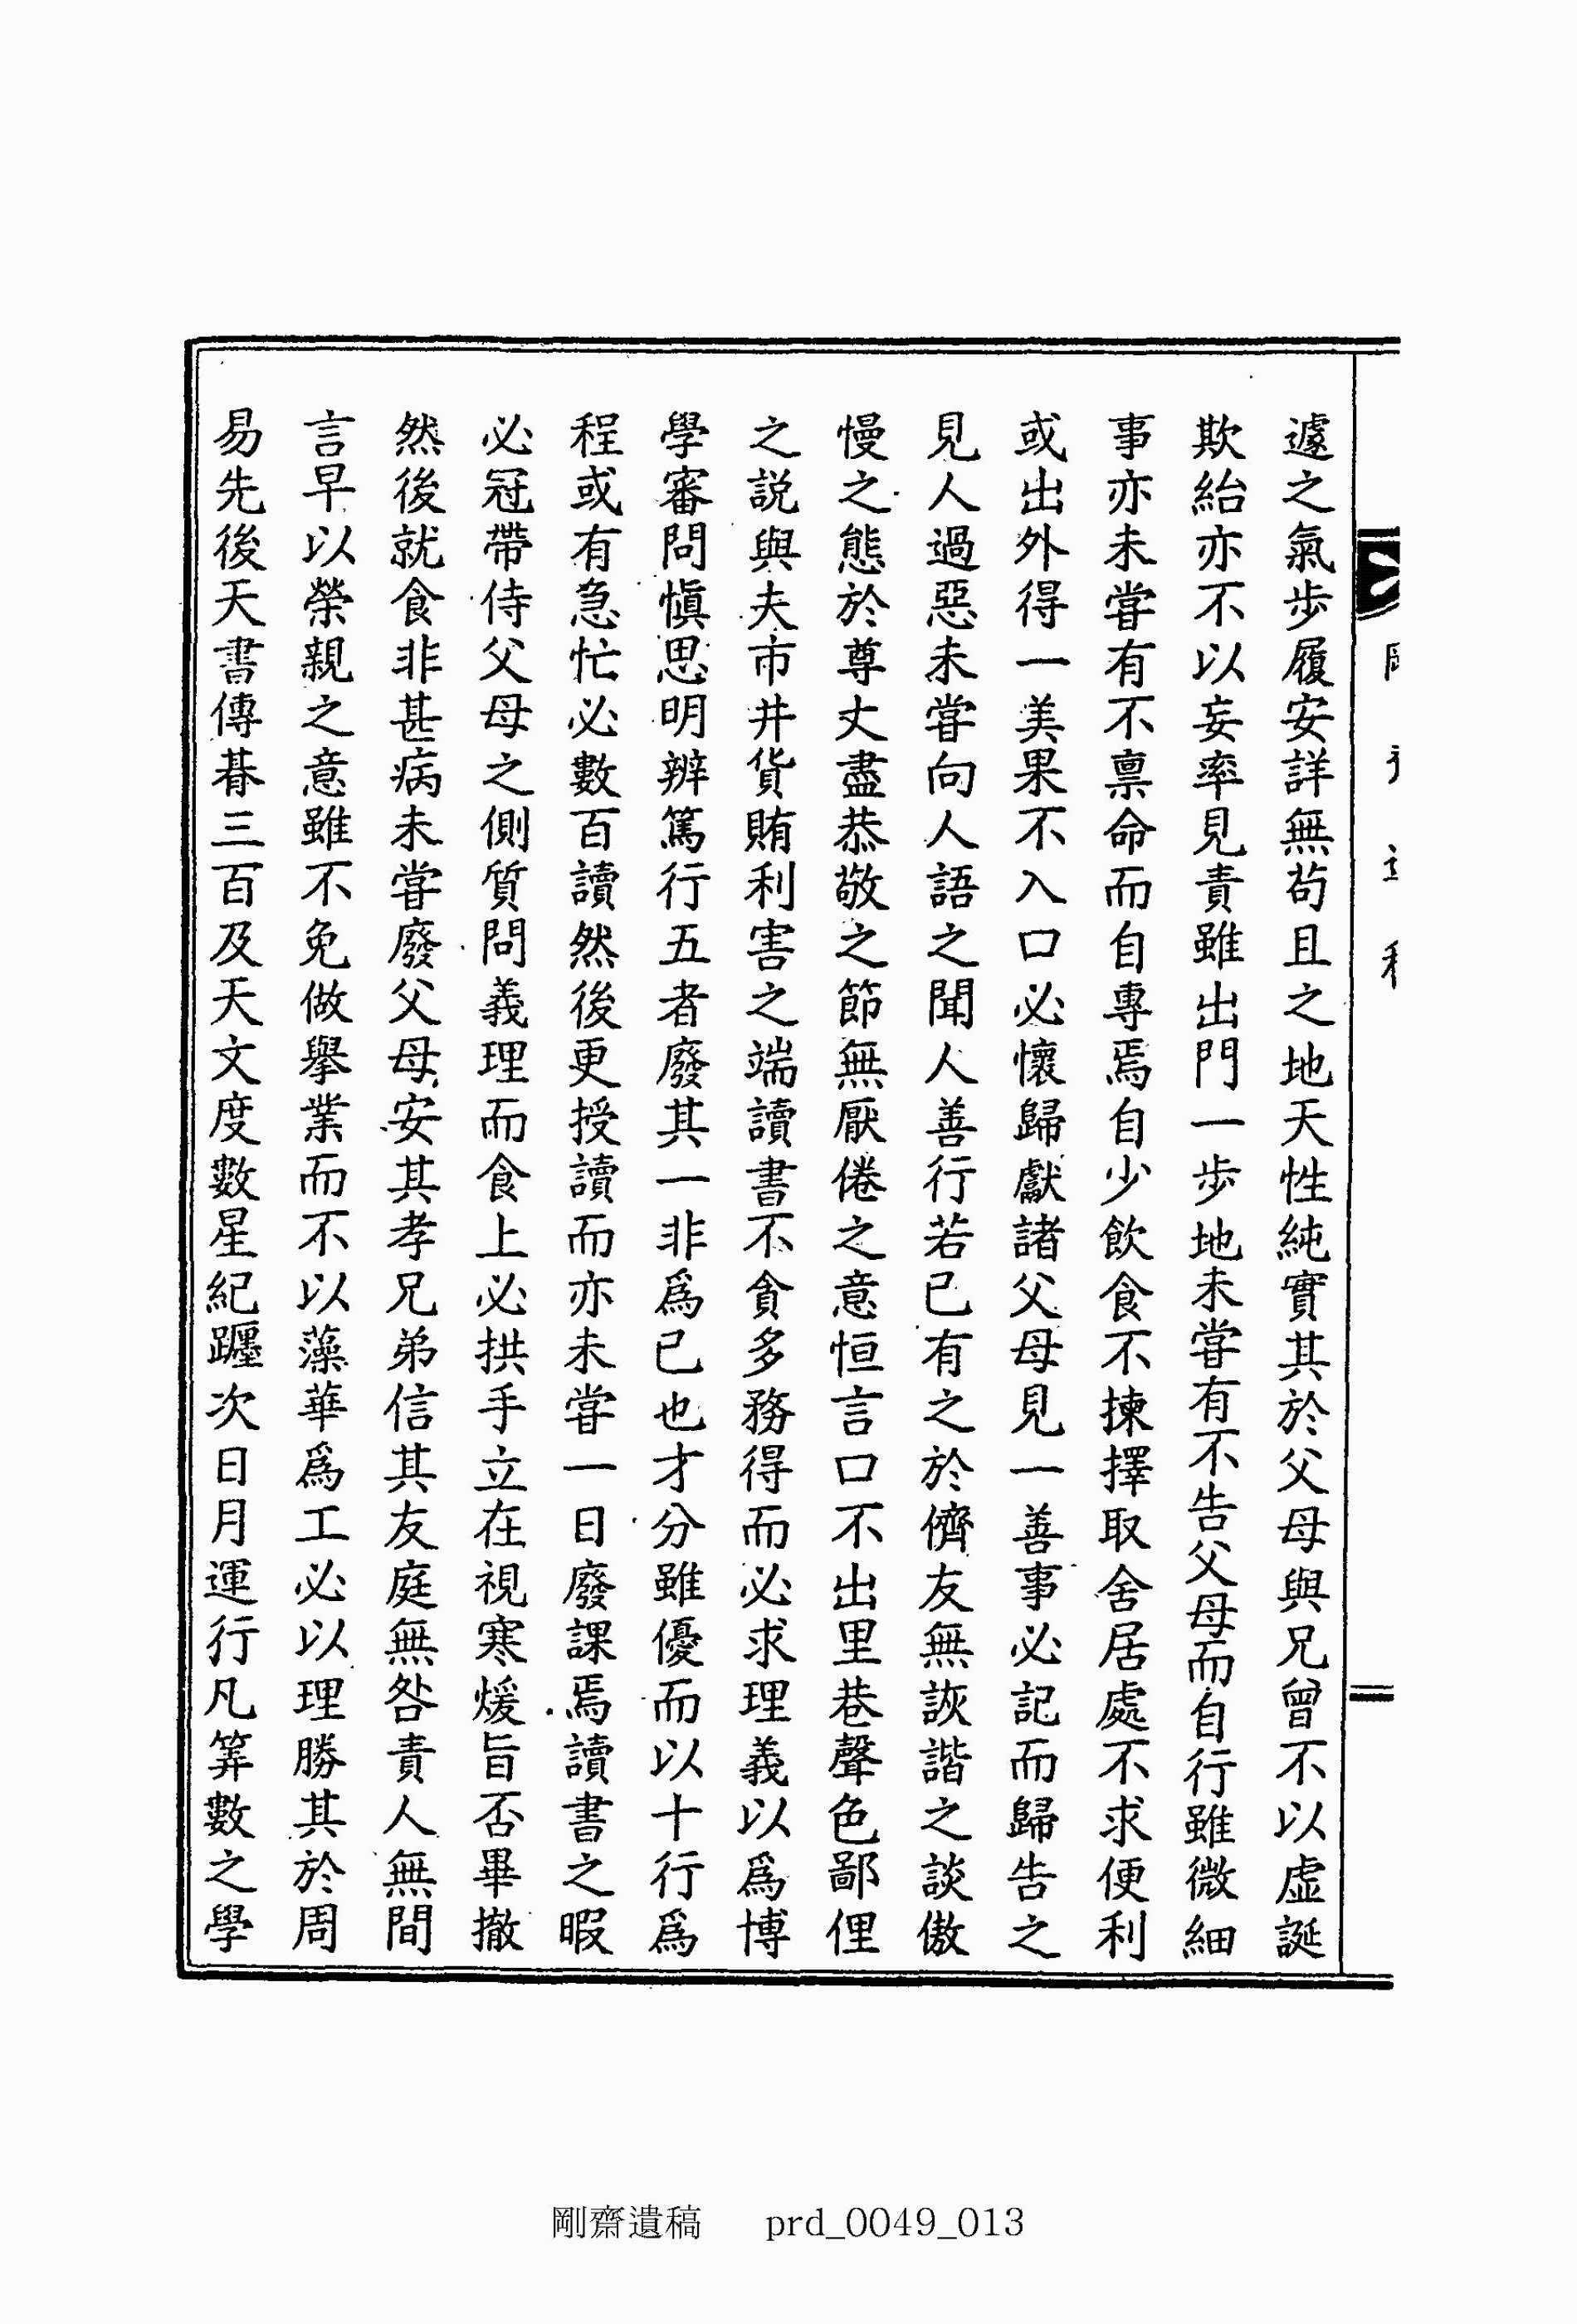 遽之氣步履安詳無苟且之地天性純實其於父母與兄曾不以虛誕
欺紿亦不以妄率見責雖出門一步地未甞有不告父母而自行雖微細
事亦未甞有不禀命而自專焉自少飮食不揀擇取舍居處不求便利
或出外得一美果不入口必懷歸獻諸父母見一善事必記而歸告之
見人過惡未甞向人語之聞人善行若已有之於儕友無詼諧之談傲
慢之態於尊丈盡恭敬之節無厭倦之意恒言口不出里巷聲色鄙俚
之說與夫市井貨賄利害之端讀書不貪多務得而必求理義以爲博
學審問愼思明辨篤行五者廢其一非爲已也才分雖優而以十行爲
程或有急忙必數百讀然後更授讀而亦未甞一日廢課焉讀書之暇
必冠帶侍父母之側質問義理而食上必拱手立在視寒煖旨否畢撤
然後就食非甚病未甞廢父母安其孝兄弟信其友庭無咎責人無間
言早以榮親之意雖不免做擧業而不以藻華爲工必以理勝其於周
易先後天書傳朞三百及天文度數星紀躔次日月運行凡筭數之學
剛齋遺稿 prd_0049_013